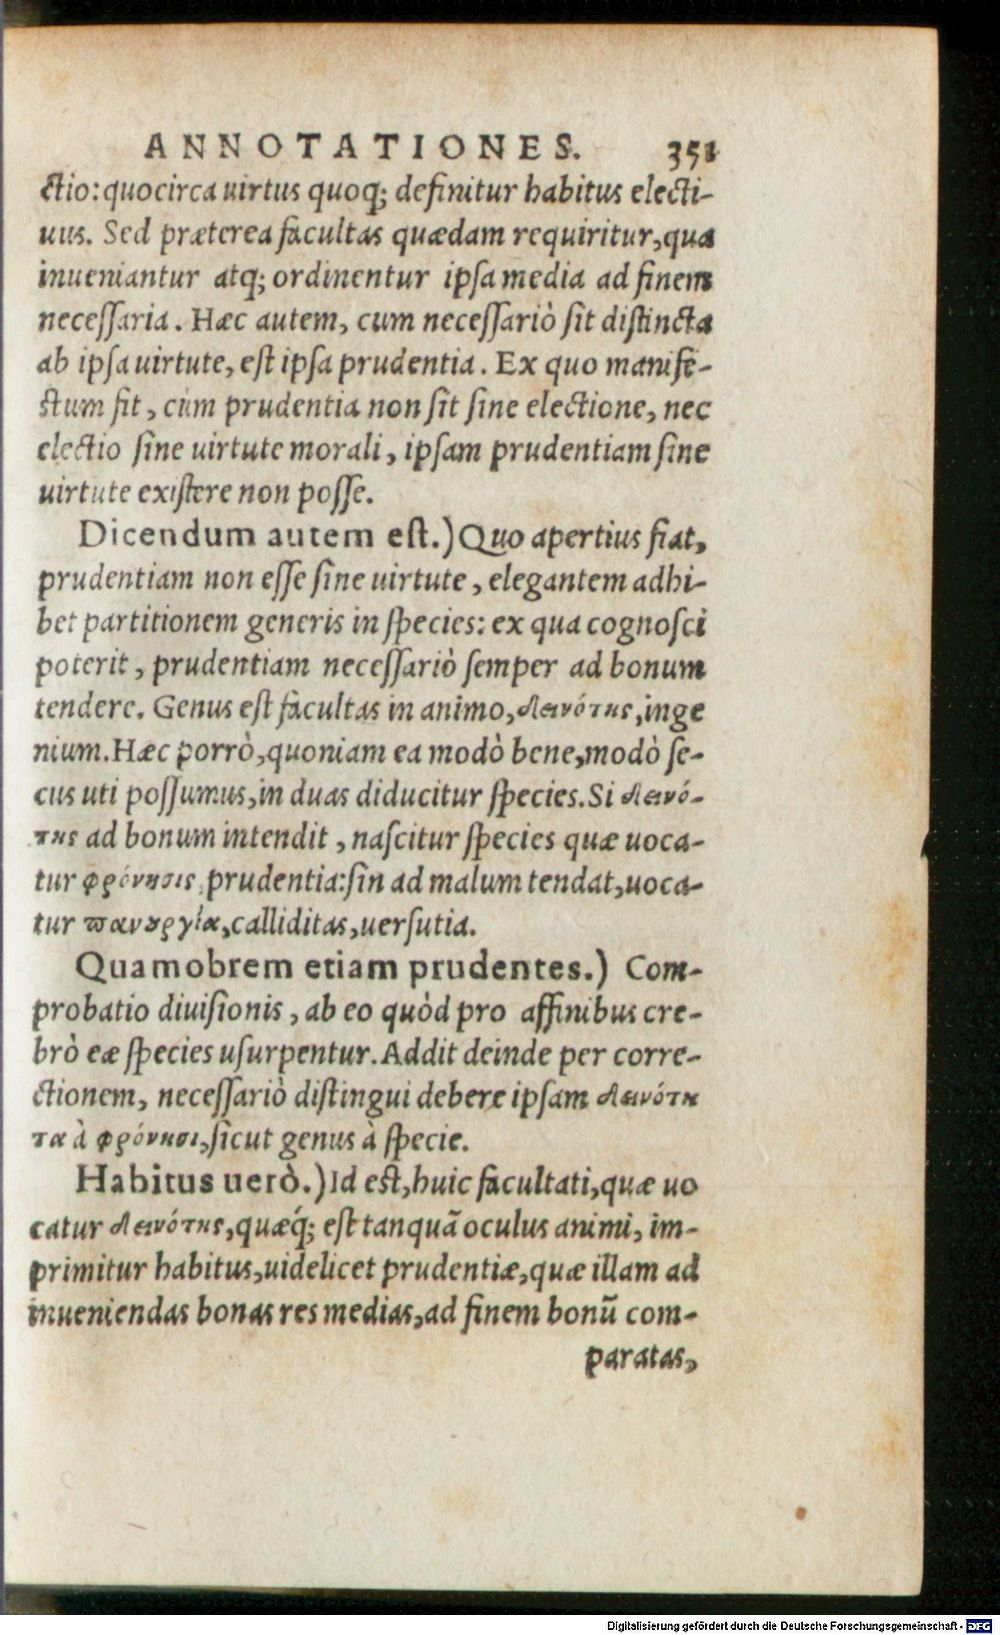 ANNOTATIONES. 351
ctio: quocirca uirtus quoq; definitur habitus electi-
uus. Sed præterea facultas quædam requiritur, qua
inueniantur atq; ordinentur ipsa media ad finem
necessaria. Hæc autem, cum necessariò sit distincta
ab ipsa uirtute, est ipsa prudentia. Ex quo manife-
stum fit, cùm prudentia non sit sine electione, nec
electio sine uirtute morali, ipsam prudentiam sine
uirtute existere non posse.
Dicendum autem est.) Quo apertius fiat,
prudentiam non esse sine uirtute, elegantem adhi-
bet partitionem generis in species: ex qua cognosci
poterit, prudentiam necessariò semper ad bonum
tendere. Genus est facultas in animo, δεινότης, inge
nium. Hæc porrò, quoniam ea modò bene, modò se-
cus uti possumus, in duas diducitur species. Si δεινό-
της ad bonum intendit, nascitur species quæ uoca-
tur φρόνησις, prudentia: sin ad malum tendat, uoca-
tur πανουργία, calliditas, uersutia.
Quamobrem etiam prudentes.) Com-
probatio diuisionis, ab eo quòd pro affinibus cre-
brò eæ species usurpentur. Addit deinde per corre-
ctionem, necessariò distingui debere ipsam δεινότη
τα à φρόνησι, sicut genus à specie.
Habitus uerò.) Id est, huic facultati, quæ uo
catur δεινότης, quæq́; est tanquã oculus animi, im-
primitur habitus, uidelicet prudentiæ, quæ illam ad
inueniendas bonas res medias, ad finem bonũ com-
paratas,
Digitalisierung gefördert durch die Deutsche Forschungsgemeinschaft - DFG